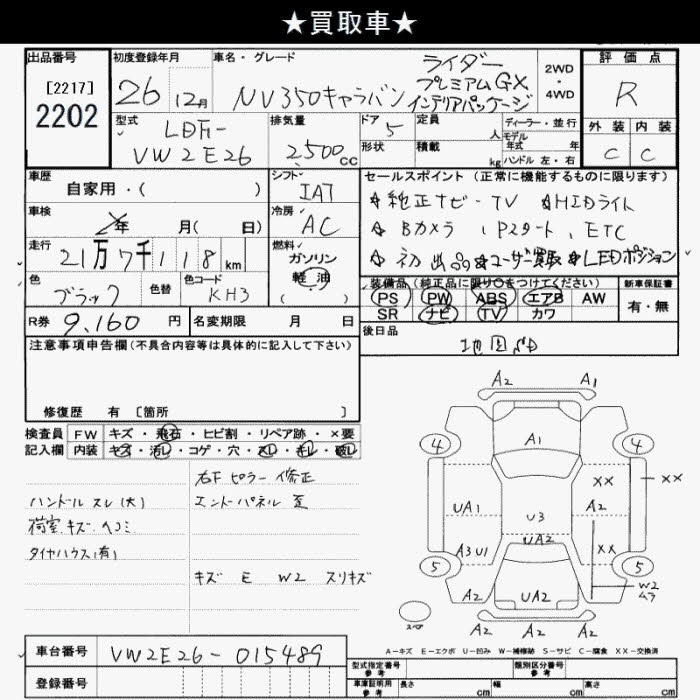 ★買取車★
出品番号
[2217]
2202
初度登録年月
26 12月
車名・グレード
NV350キャラバン
ライダー
プレミアムGX
インテリアパッケージ
2WD
・
4WD
評価点
R
外装 内装
C C
型式
LDF-
VW2E26
排気量
2,500cc
ドア 5
形状
定員 人
積載 kg
ディーラー・並行
モデル
年式 年
ハンドル 左・右
車歴
自家用・( )
シフト
IAT
車検
年 月( 日)
冷房
AC
走行
21万7千118km
燃料
ガソリン
軽油
( )
色
ブラック
色替
色コード
KH3
R券 9,160円
名変期限 月 日
セールスポイント(正常に機能するものに限ります)
☆純正ナビ・TV ☆HIDライト
☆Bカメラ、Pスタート、ETC
☆初出品☆ユーザー買取☆LEDポジション
装備品(純正品に限り○をつけてください)
PS PW ABS エアB AW
SR ナビ TV カワ
新車保証書
有・無
後日品
地図SD
注意事項申告欄(不具合内容等は具体的に記入して下さい)
修復歴 有 〔箇所 〕
検査員
記入欄
FW キズ・飛石・ヒビ割・リペア跡・×要
内装 キズ・汚レ・コゲ・穴・スレ・キレ・破レ
右Fピラー修正
ハンドルスレ(大)
エンドパネル歪
荷室キズ・ヘコミ
タイヤハウス(有)
キズ E W2 スリキズ
A2 A1
4 A1 4
XX XX
UA1 U3 A2
UA2
A3 U1 XX
5 5
A2 UA2 W2
A2 A2 A2
スペア
A-キズ E-エクボ U-凹み W-補修跡 S-サビ C-腐食 XX-交換済
車台番号 VW2E26-015489
登録番号
型式指定番号
参考
類別区分番号
参考
車庫証明用
参考
長さ cm 幅 cm 高さ cm